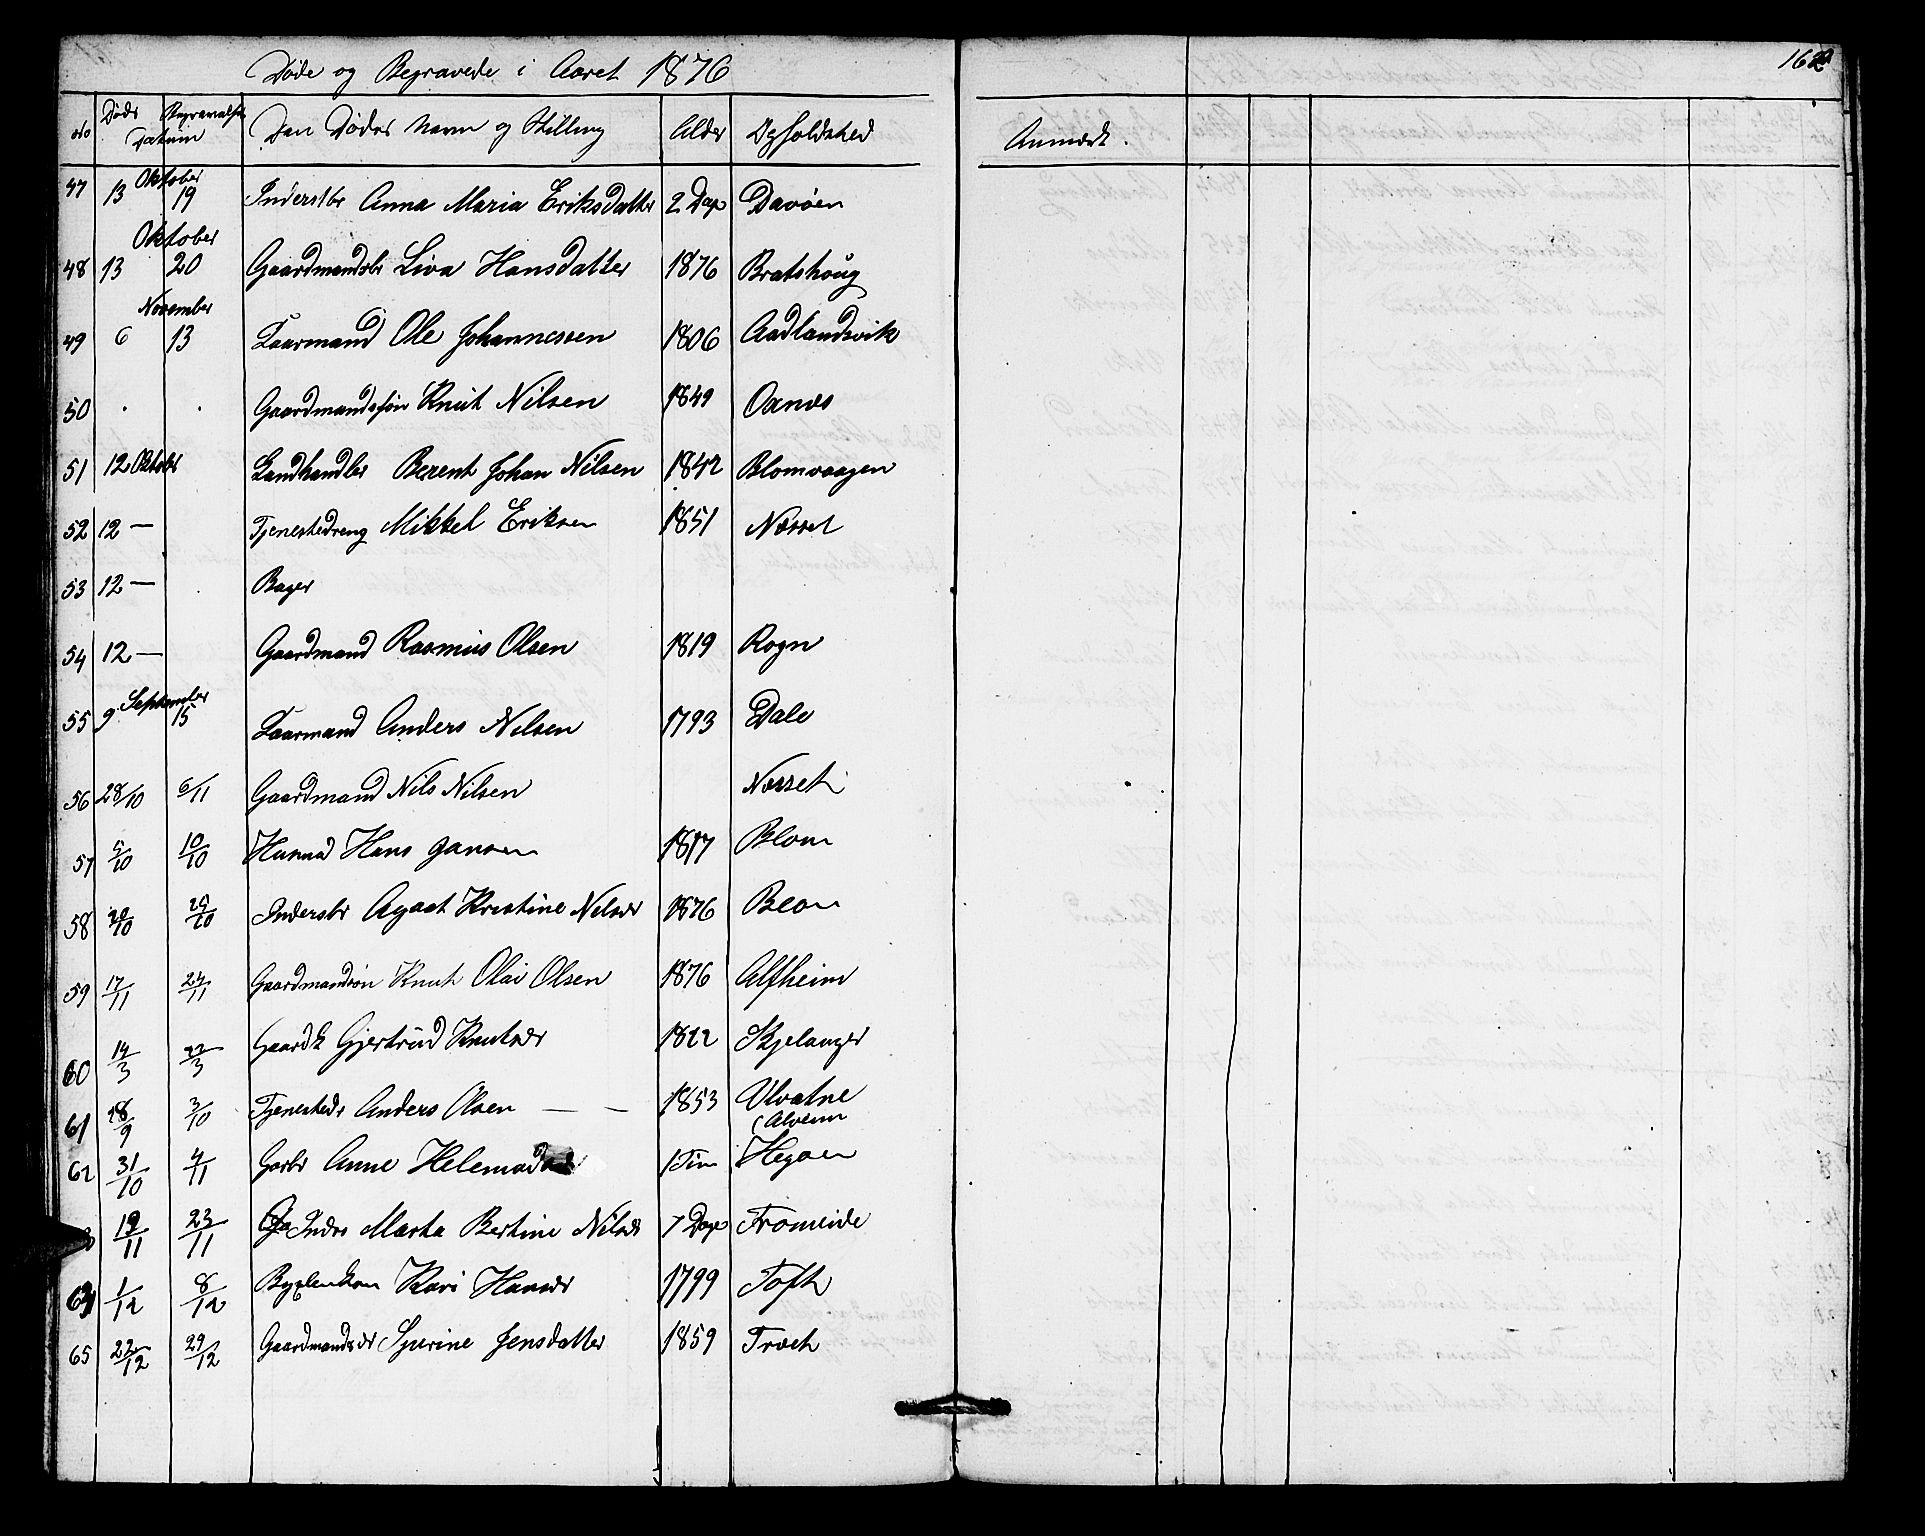 Døde og Begravede i Aaret 1876
162
No Døds Begravelses Datum Den Dødes Navn og Stilling Alder Opholdsted Anmærk.
47 13 Oktober 19 Inderstbr Anna Maria Eriksdatter 2 Dage Davøen
48 13 Oktober 20 Gaardmandsbr Liva Hansdatter 1876 Bratshoug
49 6 November 13 Kaarmand Ole Johannessen 1806 Aadlandsvik
50 . . Gaardmandsøn Knut Nilsen 1849 Oanæs
51 12 Oktober Landhandler Berent Johan Nilsen 1842 Blomvaagen
52 12 — Tjenestedreng Mikkel Eriksen 1851 Næsset
53 12 — Bager
54 12 — Gaardmand Rasmus Olsen 1819 Rogn
55 9 September 15 Kaarmand Anders Nilsen 1793 Dale
56 28/10 6/11 Gaardmand Nils Nilsen Næsset
57 5/10 10/10 Husmd Hans Jansen 1817 Blom
58 20/10 29/10 Indersbr Agaat Kristine Nilsdr 1876 Blom
59 17/11 24/11 Gaardmandsøn Knut Olai Olsen 1876 Alfheim
60 14/3 22/3 Gaardk Gjertrud Knutsdr 1822 Skjelanger
61 28/9 3/10 Tjenestedr Anders Olsen — — 1853 Ulvatne
(Alveim
62 31/10 4/11 Garbr Anne 1 Tim Hegøen
19/11 23/11 Inder Marta Bertine Nilsdr 7 Dage Fromeide
64 1/12 8/12 Kari Hansdr 1799 Toft
65 22/12 29/12 Gaardmandsdr Sjurine Jensdatter 1859 Træet